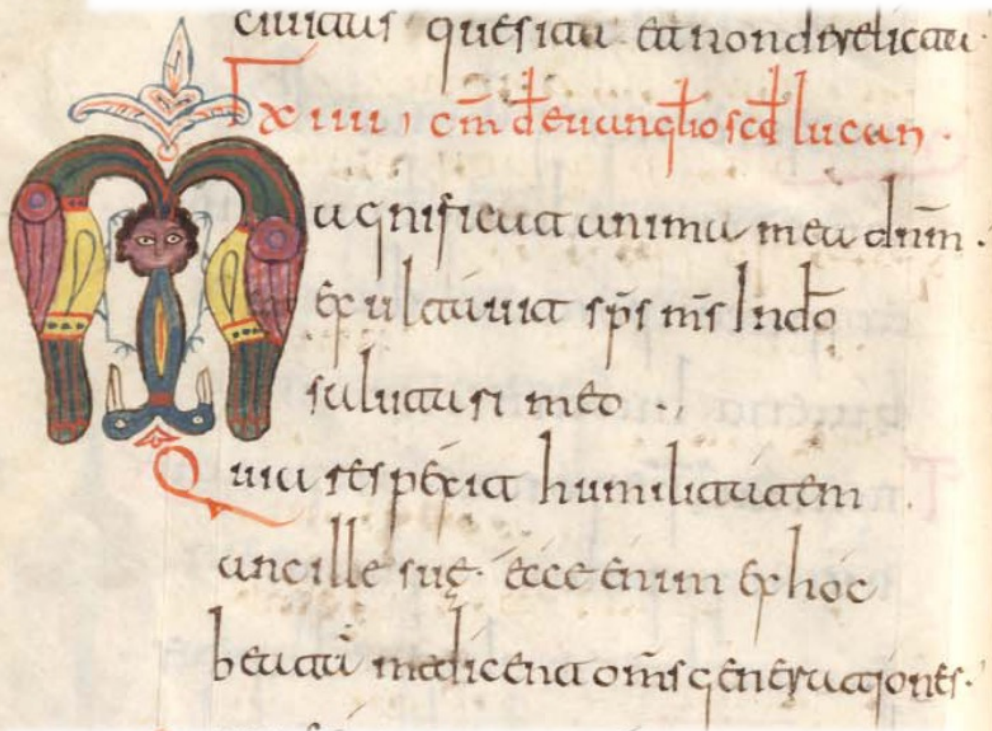 ciuitas quesita et non direlicta·
cm̄ de euangłio scd̄ lucan·
Magnificat anima mea dn̄m·
exultauit sp̄s m̄s In dō
salutari meo·,
Quia respexit humilitatem
ancille suę· ecce enim ex hoc
beatā me dicent om̄s generationes·